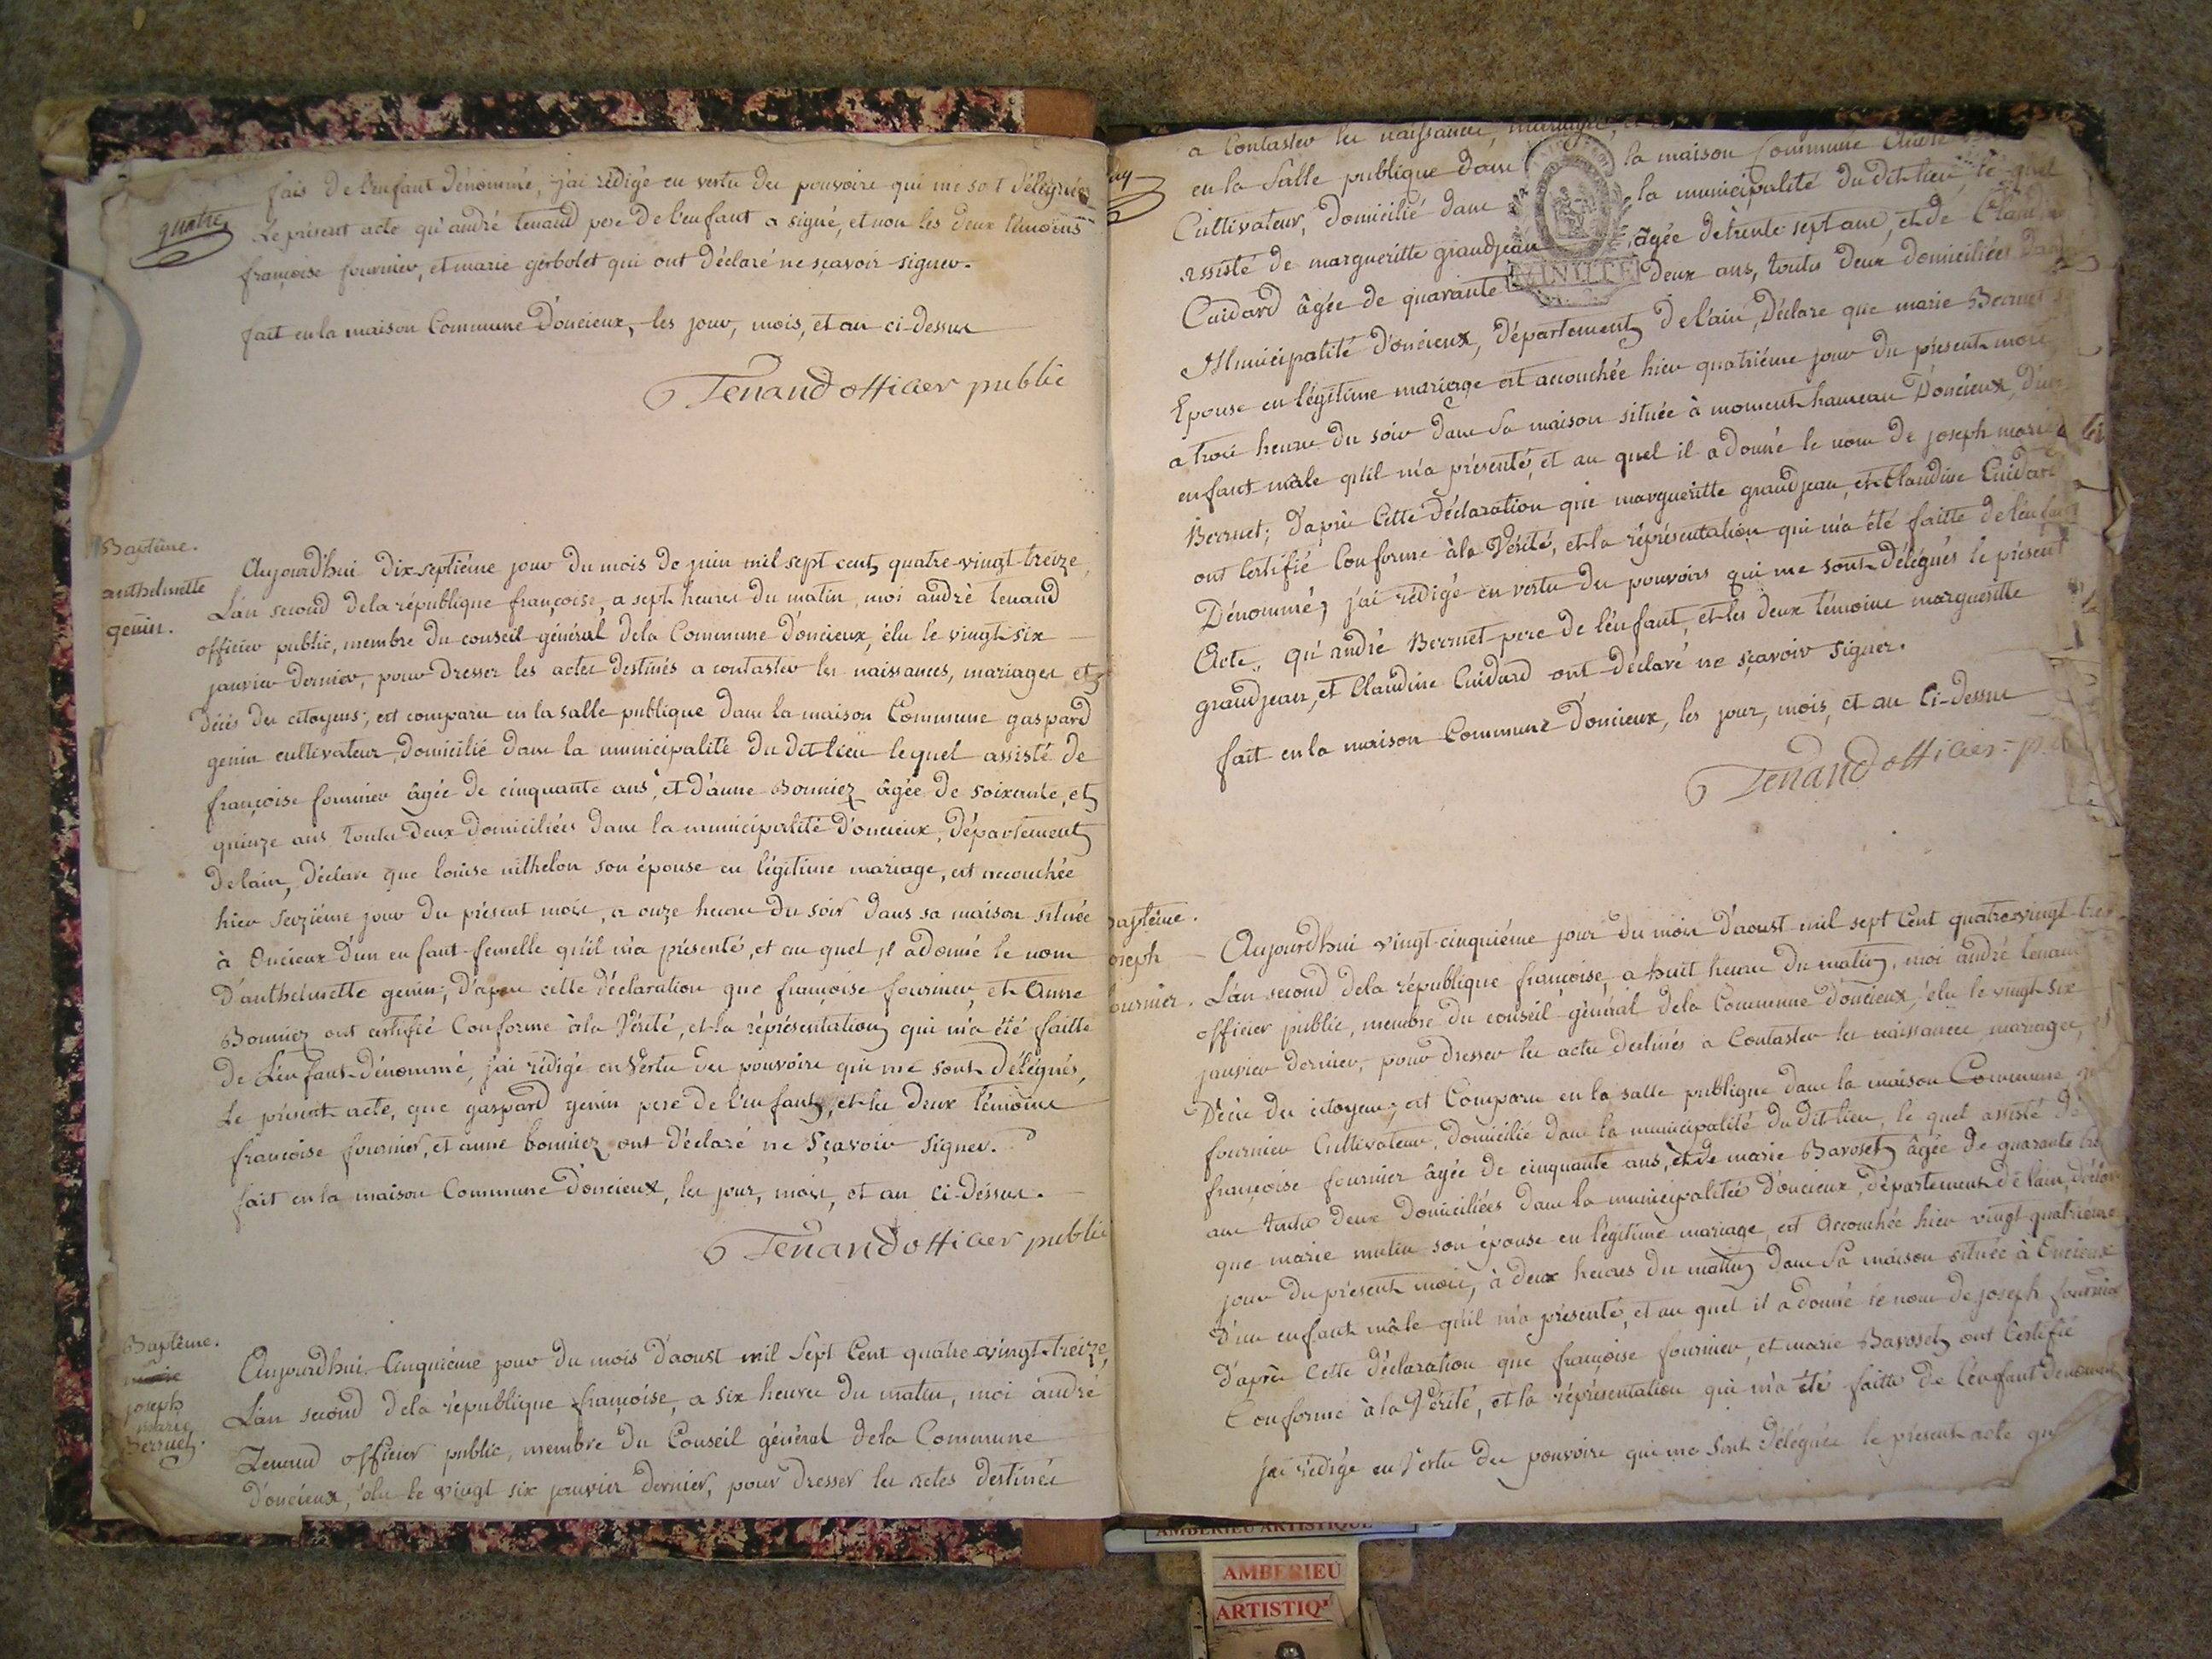 quatre
fais de l'enfant dénommé, j'ai rédigé en vertu des pouvoirs qui me sont délégués
Le présent acte qu'andré tenand pere de l'enfant a signé, et non les deux témoins
françoise fournier, et marie gerbolet qui ont déclaré ne sçavoir signer.
fait en la maison Commune D'oncieux, les jour, mois, et an ci-dessus
Tenand officier public
Baptême.
anthelmette
genin.
Aujourd'hui dix septiéme jour du mois de juin mil sept cent quatre-vingt-treize,
L'an second de la république françoise, a sept heures du matin, moi andré tenand
officier public, membre du conseil général de la Commune d'oncieux, élu le vingt-six
janvier dernier, pour dresser les actes destinés a contaster les naissances, mariages et
décès des citoyens; est comparu en la salle publique dans la maison Commune gaspard
genin cultivateur, domicilié dans la municipalité du dit lieu lequel assisté de
françoise fournier âgée de cinquante ans, et d'anne Bonniez âgée de soixante, et
quinze ans toutes deux domiciliées dans la municipalité d'oncieux, département
de lain, déclare que louise nithelon son épouse en légitime mariage, est accouchée
hier seiziéme jour du présent mois, a onze heures du soir dans sa maison située
à Oncieux d'un enfant femelle qu'il m'a présenté, et au quel il a donné le nom
D'anthelmette genin; d'après cette déclaration que françoise fournier et Anne
Bonniez ont certifié Conforme à la Vérité, et la réprésentation qui m'a été faitte
de L'enfant dénommé, j'ai rédigé en Vertu des pouvoirs qui me sont délégués,
Le présent acte, que gaspard genin pere de l'enfant, et les deux témoins
françoise fournier, et anne bonniez ont déclaré ne sçavoir signer.
fait en la maison Commune D'oncieux, les jour, mois, et an ci-dessus.
Tenand officier public
Baptême.
joseph
marie
Berrnet.
Aujourdhui Cinquiéme jour du mois d'aoust mil Sept Cent quatre-vingt-treize,
L'an second de la république françoise, a six heures du matin, moi andré
Tenand officier public, membre du Conseil général de la Commune
D'oncieux, élu le vingt six janvier dernier, pour dresser les actes destinés
a Contaster les naissances, mariages,
en la Salle publique dans la maison Commune André
Cultivateur, domicilié dans la municipalité du dit lieu le quel
assisté de margueritte grandjean âgée de trente sept ans, et de Claudine
Cuidard âgée de quarante deux ans, toutes deux domiciliées dans
MINUTE
Municipalité d'oncieux, département de l'ain, Déclare que marie Bernet
Epouse en légitime mariage est accouchée hier quatriéme jour du présent mois
a trois heures du soir dans sa maison située à moment hameau D'oncieux, d'un
enfant mâle qu'il m'a présenté, et au quel il a donné le nom de joseph marie
Berrnet; d'après Cette déclaration que margueritte grandjean, et Claudine Cuidard
ont Certifié Conforme à la Vérité, et la réprésentation qui m'a été faitte de l'enfant
Dénommé, j'ai rédigé en vertu des pouvoirs qui me sont délégués le présent
Acte, qu'andré Berrnet pere de l'enfant, et les deux témoins margueritte
grandjean, et Claudine Cuidard ont déclaré ne sçavoir signer.
fait en la maison Commune D'oncieux, les jour, mois, et an Ci-dessus
Tenand officier
Baptême.
joseph
fournier.
Aujourdhui vingt-cinquiéme jour du mois d'aoust mil sept Cent quatre-vingt-treize
L'an second de la république françoise, a huit heures du matin, moi andré tenand
officier public, membre du conseil général de la Commune d'oncieux, élu le vingt-six
janvier dernier, pour dresser les actes destinés a Contaster les naissances, mariages, et
Décès des citoyens; est Comparu en la salle publique dans la maison Commune
fournier Cultivateur, domicilié dans la municipalité du dit lieu, le quel assisté de
françoise fournier âgée de cinquante ans, et de marie Bavoset âgée de quarante
ans toutes deux domiciliées dans la municipalitée d'oncieux, département de lain, déclare
que marie mutin son épouse en légitime mariage, est Accouchée hier vingt-quatriéme
jour du présent mois, à deux heures du matin dans sa maison située à Oncieux
D'un enfant mâle qu'il m'a présenté, et au quel il a donné le nom de joseph fournier
D'après Cette déclaration que françoise fournier, et marie Bavoset ont Certifié
Conforme à la Vérité, et la réprésentation qui m'a été faitte de l'enfant dénommé
j'ai rédigé en Vertu des pouvoirs qui me sont délégués le présent acte
AMBERIEU ARTISTIQUE
AMBERIEU
ARTISTIQ